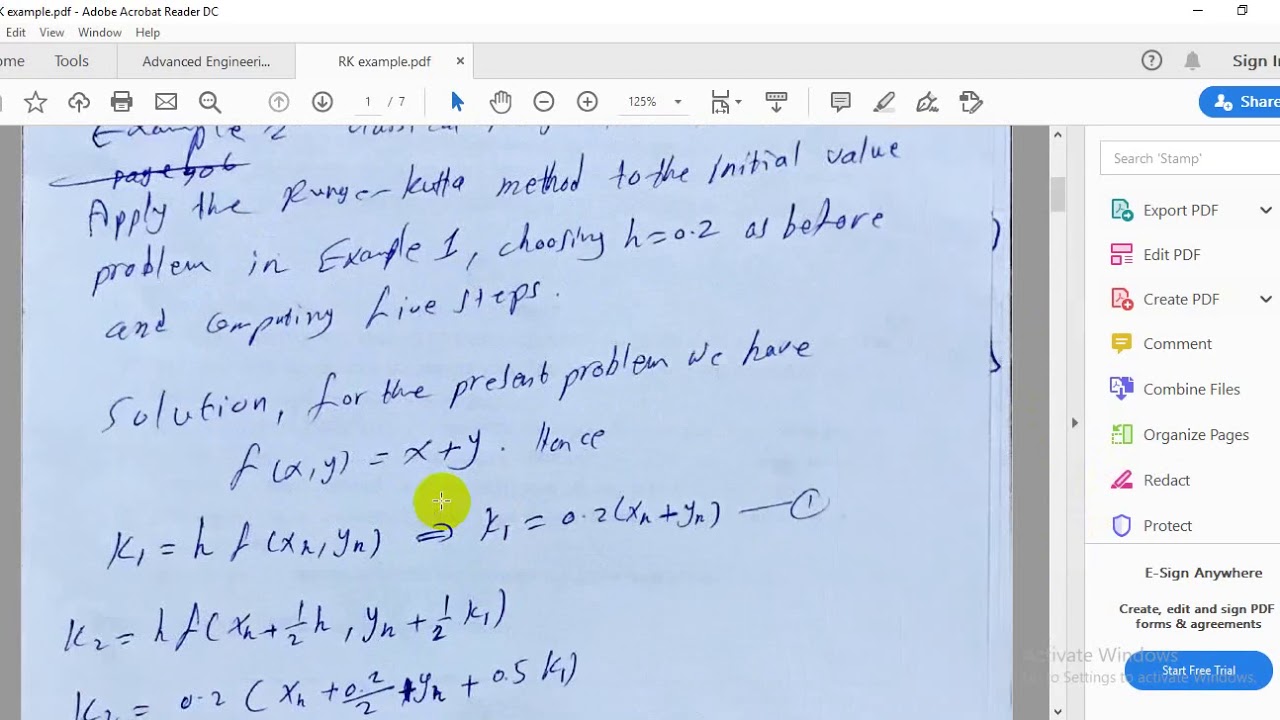 K example.pdf - Adobe Acrobat Reader DC
Edit View Window Help
ome Tools Advanced Engineeri... RK example.pdf × Sign I
1 / 7 125% Share
Example 2 Classical
page 906
Apply the Runge-Kutta method to the initial value
problem in Example 1, choosing h=0.2 as before
and computing five steps.
Solution, for the present problem we have
f(x,y) = x+y. Hence
K₁ = h f(xₙ,yₙ) ⇒ K₁ = 0.2(xₙ+yₙ) — ①
K₂ = h f(xₙ+½h, yₙ+½K₁)
K₂ = 0.2 (xₙ + 0.2/2 + yₙ + 0.5 K₁)
Search 'Stamp'
Export PDF
Edit PDF
Create PDF
Comment
Combine Files
Organize Pages
Redact
Protect
E-Sign Anywhere
Create, edit and sign PDF
forms & agreements
Activate Windows
Go to Settings to activate Windows.
Start Free Trial